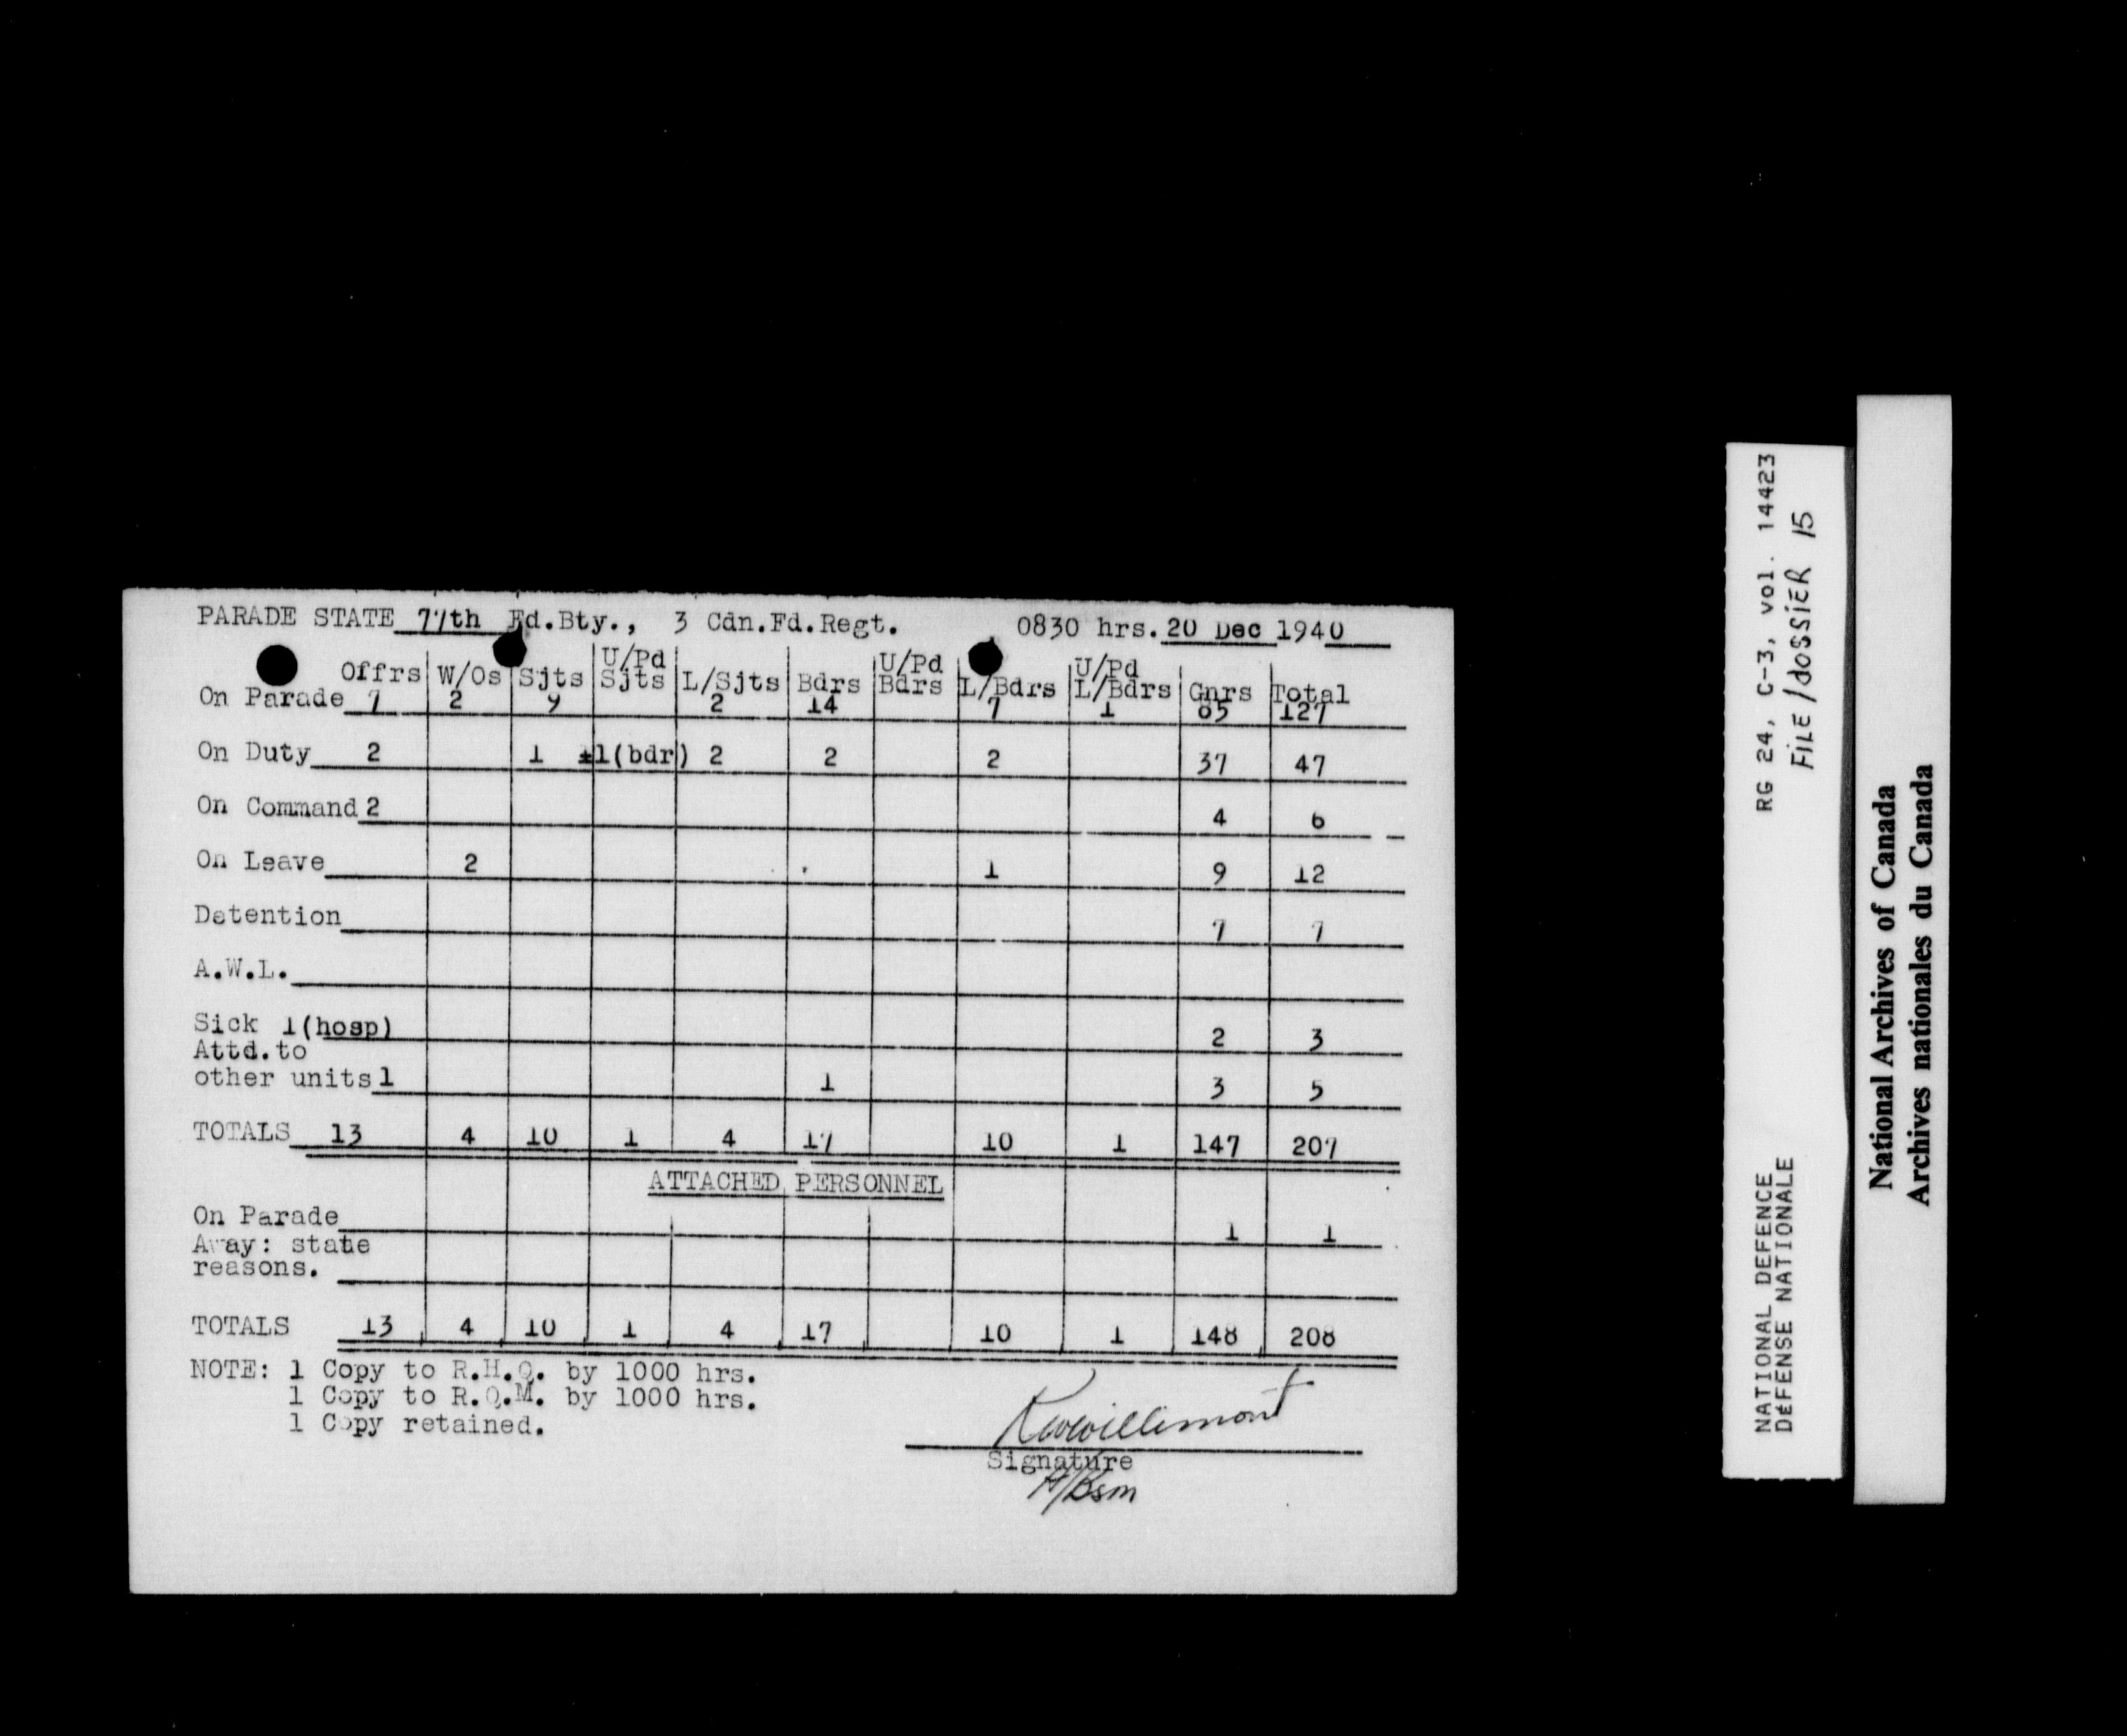 PARADE STATE 77th Fd.Bty., 3 Cdn.Fd.Regt. 0830 hrs. 20 Dec 1940
Offrs W/Os Sjts U/Pd Sjts L/Sjts Bdrs U/Pd Bdrs L/Bdrs U/Pd L/Bdrs Gnrs Total
On Parade 7 2 9 2 14 7 1 85 127
On Duty 2 1 1(bdr) 2 2 2 37 47
On Command 2 4 6
On Leave 2 1 9 12
Detention 7 7
A.W.L.
Sick 1(hosp) 2 3
Attd.to
other units 1 1 3 5
TOTALS 13 4 10 1 4 17 10 1 147 207
ATTACHED PERSONNEL
On Parade 1 1
Away: state
reasons.
TOTALS 13 4 10 1 4 17 10 1 148 208
NOTE: 1 Copy to R.H.Q. by 1000 hrs.
1 Copy to R.Q.M. by 1000 hrs.
1 Copy retained.
Signature
A/Bsm
RG 24, C-3, vol. 14423
FILE/dossier 15
NATIONAL DEFENCE
DÉFENSE NATIONALE
National Archives of Canada
Archives nationales du Canada